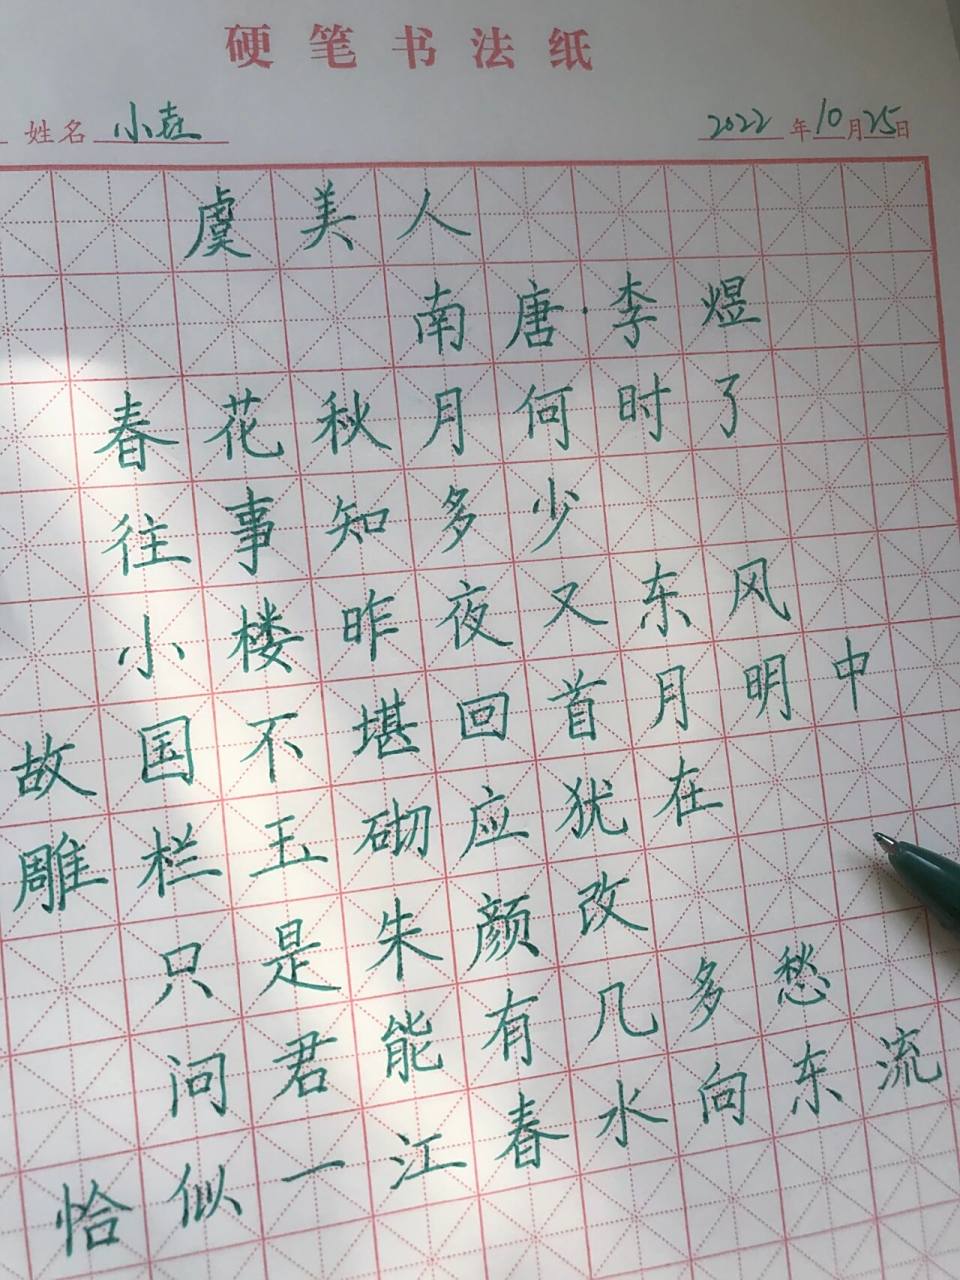 硬笔书法纸
姓名 小垚 2022年10月25日
虞美人
南唐·李煜
春花秋月何时了
往事知多少
小楼昨夜又东风
故国不堪回首月明中
雕栏玉砌应犹在
只是朱颜改
问君能有几多愁
恰似一江春水向东流